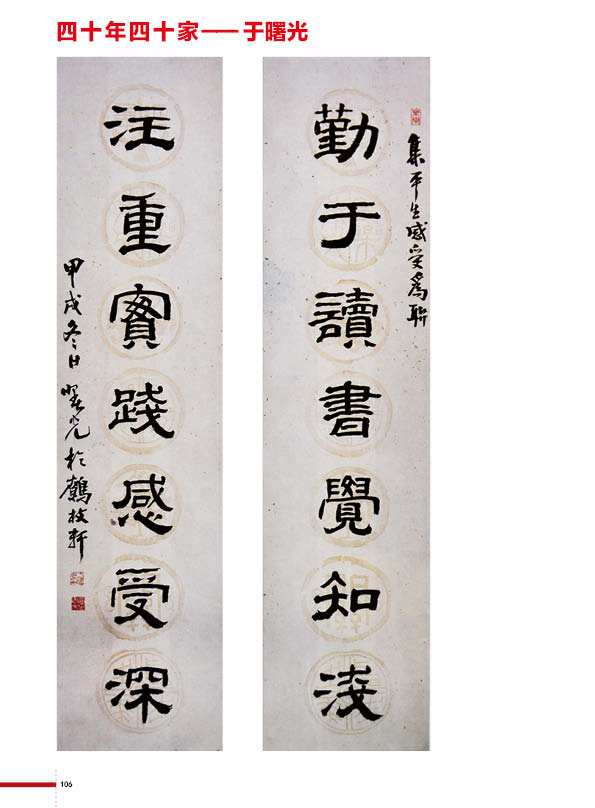 四十年四十家——于曙光
集平生感受爲聯
勤于讀書覺知淺
注重實踐感受深
甲戌冬日曙光於鶴枝軒
106